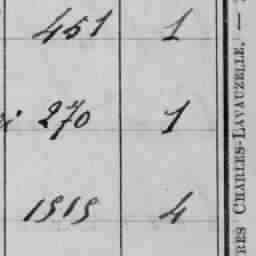 451 1
270 1
1919 4
RES CHARLES-LAVAUZELLE. —